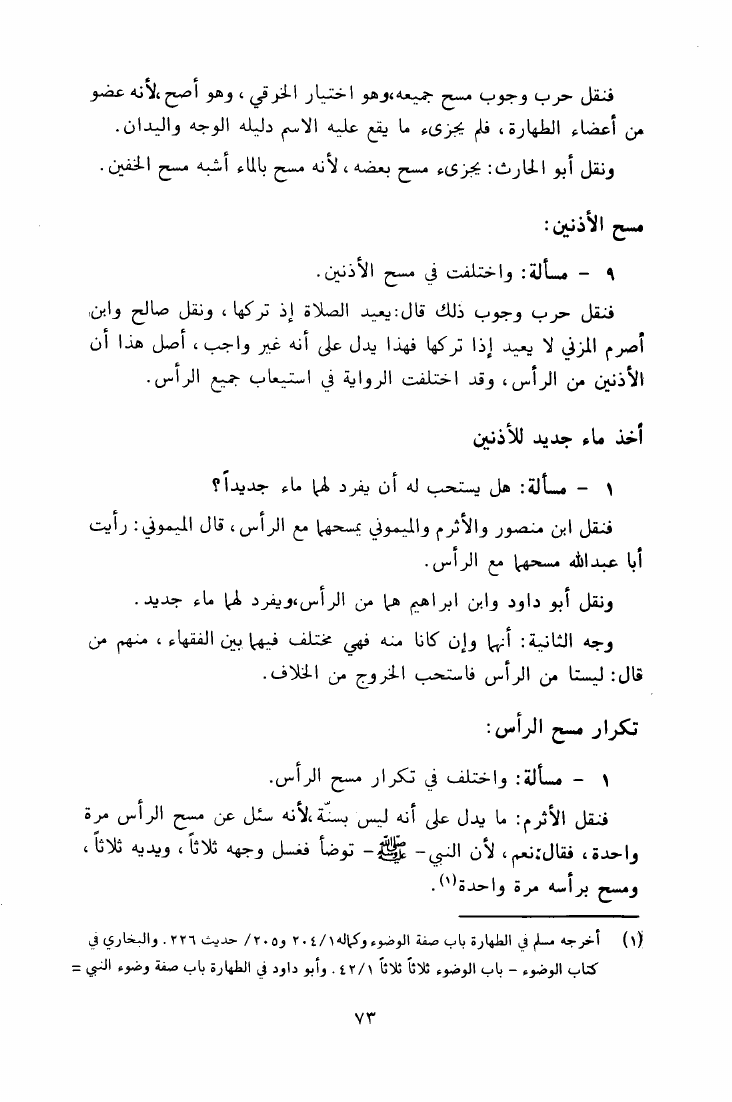 فنقل حرب وجوب مسح جميعه،وهو اختيار الخرقي، وهو أصح،لأنه عضو
من أعضاء الطهارة، فلم يجزىء ما يقع عليه الاسم دليله الوجه واليدان.
ونقل أبو الحارث: يجزىء مسح بعضه، لأنه مسح بالماء أشبه مسح الخفين.
مسح الأذنين:
٩ - مسألة: واختلفت في مسح الأذنين.
فنقل حرب وجوب ذلك قال: يعيد الصلاة إذ تركها، ونقل صالح وابن
أصرم المزني لا يعيد إذا تركها فهذا يدل على أنه غير واجب، أصل هذا أن
الأذنين من الرأس، وقد اختلفت الرواية في استيعاب جميع الرأس.
أخذ ماء جديد للأذنين
١ - مسألة: هل يستحب له أن يفرد لهما ماء جديداً؟
فنقل ابن منصور والأثرم والميموني يمسحهما مع الرأس، قال الميموني: رأيت
أبا عبدالله مسحهما مع الرأس.
ونقل أبو داود وابن ابراهيم هما من الرأس،ويفرد لهما ماء جديد.
وجه الثانية: أنهما وإن كانا منه فهي مختلف فيهما بين الفقهاء، منهم من
قال: ليستا من الرأس فاستحب الخروج من الخلاف.
تكرار مسح الرأس:
١ - مسألة: واختلف في تكرار مسح الرأس.
فنقل الأثرم: ما يدل على أنه ليس بسنّة،لأنه سئل عن مسح الرأس مرة
واحدة، فقال:نعم، لأن النبي - ﷺ - توضأ فغسل وجهه ثلاثاً، ويديه ثلاثاً،
ومسح برأسه مرة واحدة(١).
(١) أخرجه مسلم في الطهارة باب صفة الوضوء وكماله ٢٠٤/١ و٢٠٥/ حديث ٢٢٦. والبخاري في
كتاب الوضوء - باب الوضوء ثلاثاً ثلاثاً ٤٢/١. وأبو داود في الطهارة باب صفة وضوء النبي =
٧٣